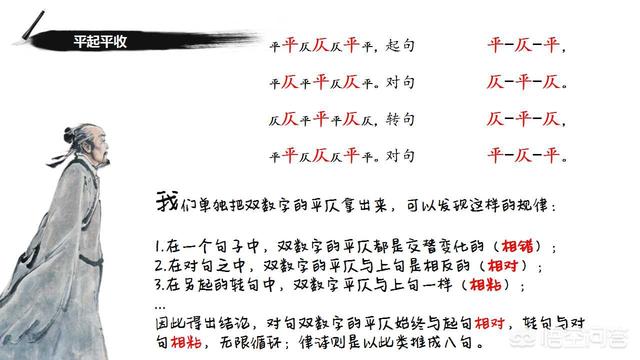 平起平收
平平仄仄仄平平，起句 平-仄-平，
平仄平平仄仄平。对句 仄-平-仄。
仄仄平平平仄仄，转句 仄-平-仄，
平平仄仄仄平平。对句 平-仄-平。
我们单独把双数字的平仄拿出来，可以发现这样的规律：
1.在一个句子中，双数字的平仄都是交替变化的（相错）；
2.在对句之中，双数字的平仄与上句是相反的（相对）；
3.在另起的转句中，双数字平仄与上句一样（相粘）；
...
因此得出结论，对句双数字的平仄始终与起句相对，转句与对
句相粘，无限循环；律诗则是以此类推成八句。
悟空问答